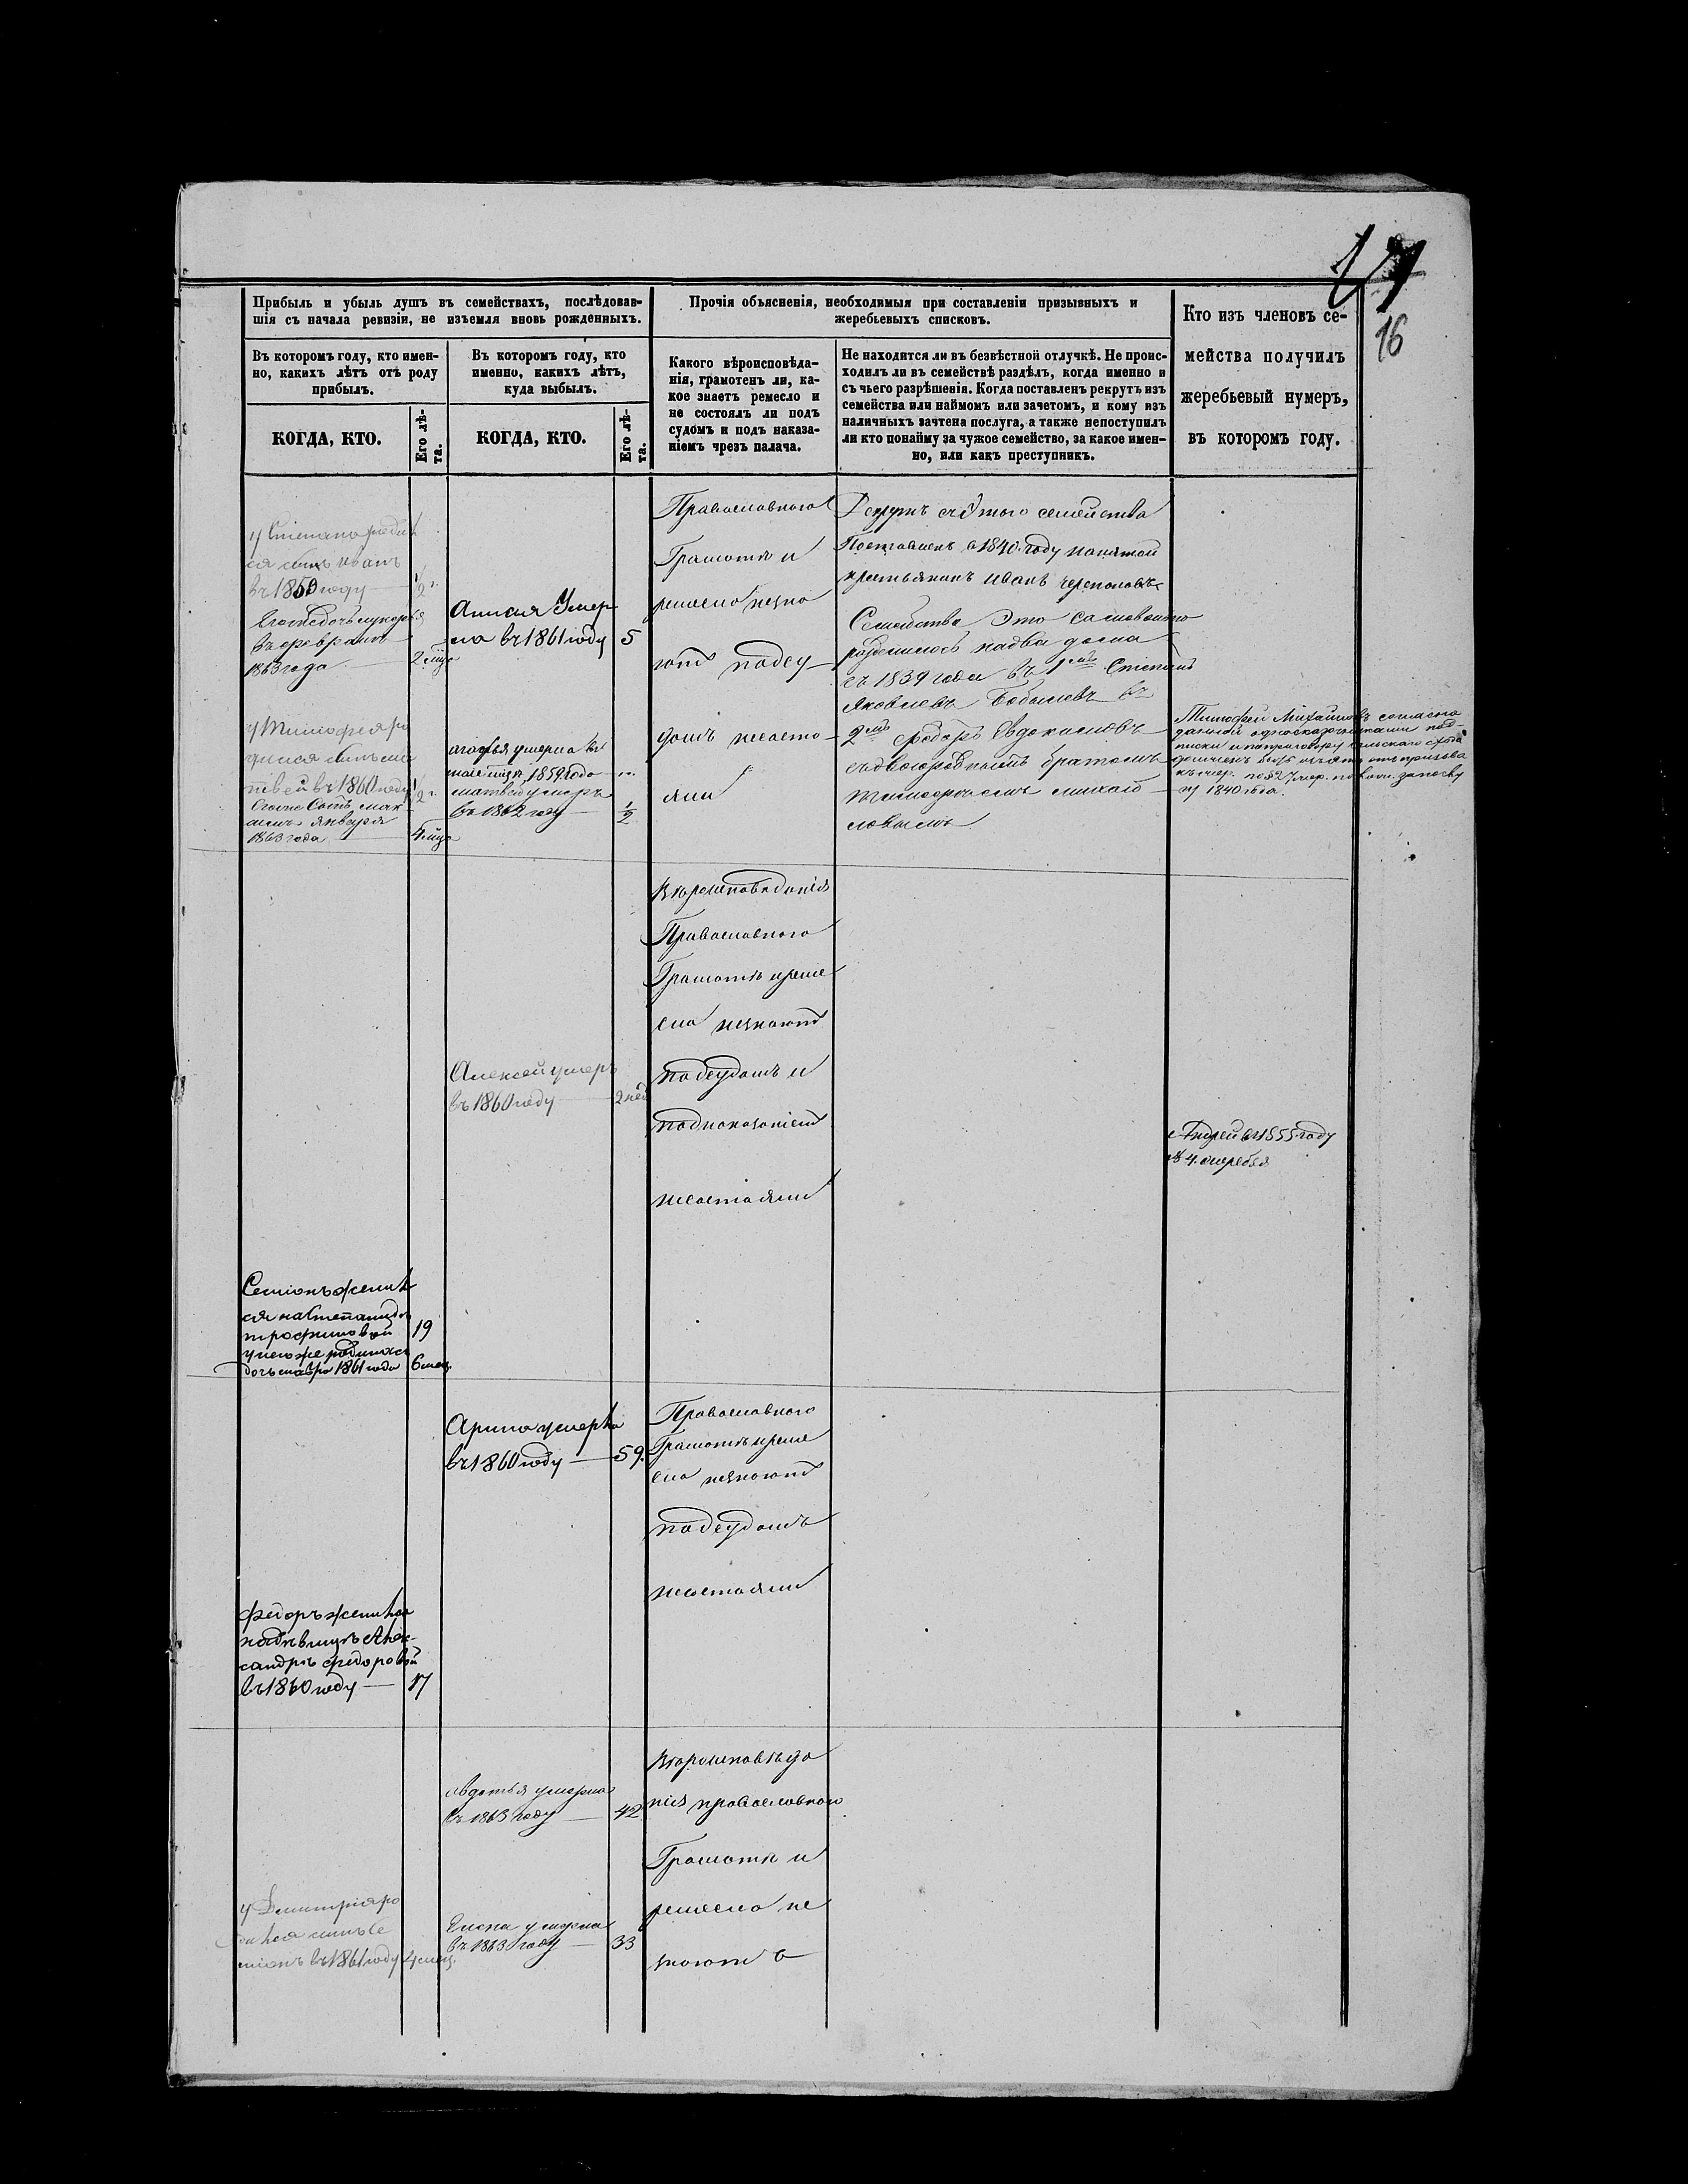 17
16
Прибыль и убыль душъ въ семействахъ, послѣдовав-
шія съ начала ревизіи, не изъемля вновь рожденныхъ.
Прочія объясненія, необходимыя при составленіи призывныхъ и
жеребьевыхъ списковъ.
Кто изъ членовъ се-
мейства получилъ
жеребьевый нумеръ,
въ которомъ году.
Въ которомъ году, кто имен-
но, какихъ лѣтъ отъ роду
прибылъ.
Въ которомъ году, кто
именно, какихъ лѣтъ,
куда выбылъ.
Какого вѣроисповѣда-
нія, грамотенъ ли, ка-
кое знаетъ ремесло и
не состоялъ ли подъ
судомъ и подъ наказа-
ніемъ чрезъ палача.
Не находится ли въ безвѣстной отлучкѣ. Не проис-
ходилъ ли въ семействѣ раздѣлъ, когда именно и
съ чьего разрѣшенія. Когда поставленъ рекрутъ изъ
семейства или наймомъ или зачетомъ, и кому изъ
наличныхъ зачтена послуга, а также непоступилъ
ли кто понайму за чужое семейство, за какое имен-
но, или какъ преступникъ.
КОГДА, КТО.
Его лѣ-
та.
КОГДА, КТО.
Его лѣ-
та.
у Степана родил
ся сынъ иванъ
въ 1859 году 1/2
Его же дочь
въ феврале
1863 года 2 мца
Анисья Умер
ла въ 1861 году 5
Православного
Грамоты и
ремесло незна
ютъ подсу
домъ несосто
яли
Рекрутъ съ этого семейства
Поставленъ в 1840 году нанятой
крестьянинъ иванъ
Семейство Это самовольно
разделилось на два дома
съ 1839 года въ 1мъ Степанъ
Яковлевъ въ
2мъ Федоръ Евдокимовъ
съ двоюроднымъ братомъ
тимофеемъ михай
ловымъ
у Тимофея ро
дился сынъ ма
твей въ 1860 году 1/2
Его же Сынъ мак
симъ января
1863 года 4 мца
агафья умерла въ
мае мце 1859 года
матвей умеръ
въ 1862 году 1/2
Тимофей Михайловъ согласно
данной однообщественниками под-
писки и по приговору сельскаго схода
1840 года.
Вероисповедания
Православного
Грамоты и реме
сла незнаютъ
подсудомъ и
поднаказаниемъ
несостояли
Алексей умеръ
въ 1860 году 2 нед
Андрей в 1855 году
№ 4. жеребья
Семионъ женил
ся на Степаниде
трофимовой 19
у него же родилась
дочь мавра 1861 года 6 мец.
Арина умерла
въ 1860 году 59.
Православного
Грамоты и реме
сла незнаютъ
подсудомъ
несостояли
Федоръ женился
на девице Алек-
сандре федоровой
въ 1860 году 17
авдотья умерла
въ 1863 году 42
Вероисповеда
ния православного
Грамоты и
ремесло не
знаютъ
у Димитрия ро
дился сынъ Се
мионъ въ 1861 году 4 мец.
Елена умерла
въ 1863 году 33